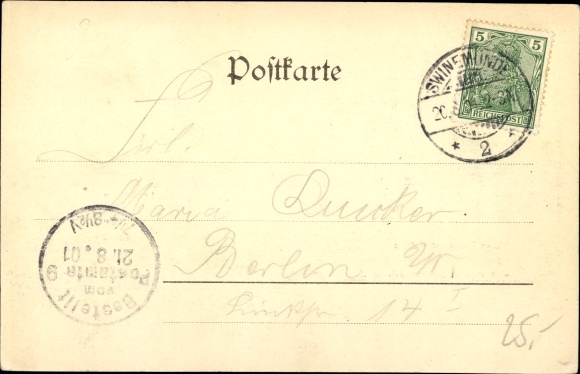 Postkarte
5 5
REICHSPOST
SWINEMÜNDE
20.
* 2 *
Frl.
Maria
Berlin W.
14 I
Bestellt
vom
Postamte 9
21.8.01
7¼-8¼V
25,-